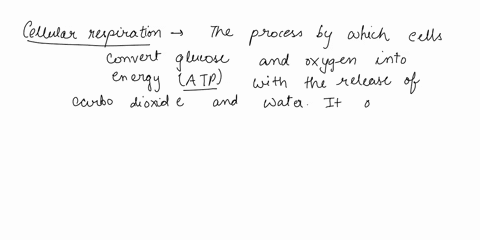 Cellular respiration → The process by which cells
convert glucose and oxygen into
energy (ATP) with the release of
carbo dioxide and water. It o